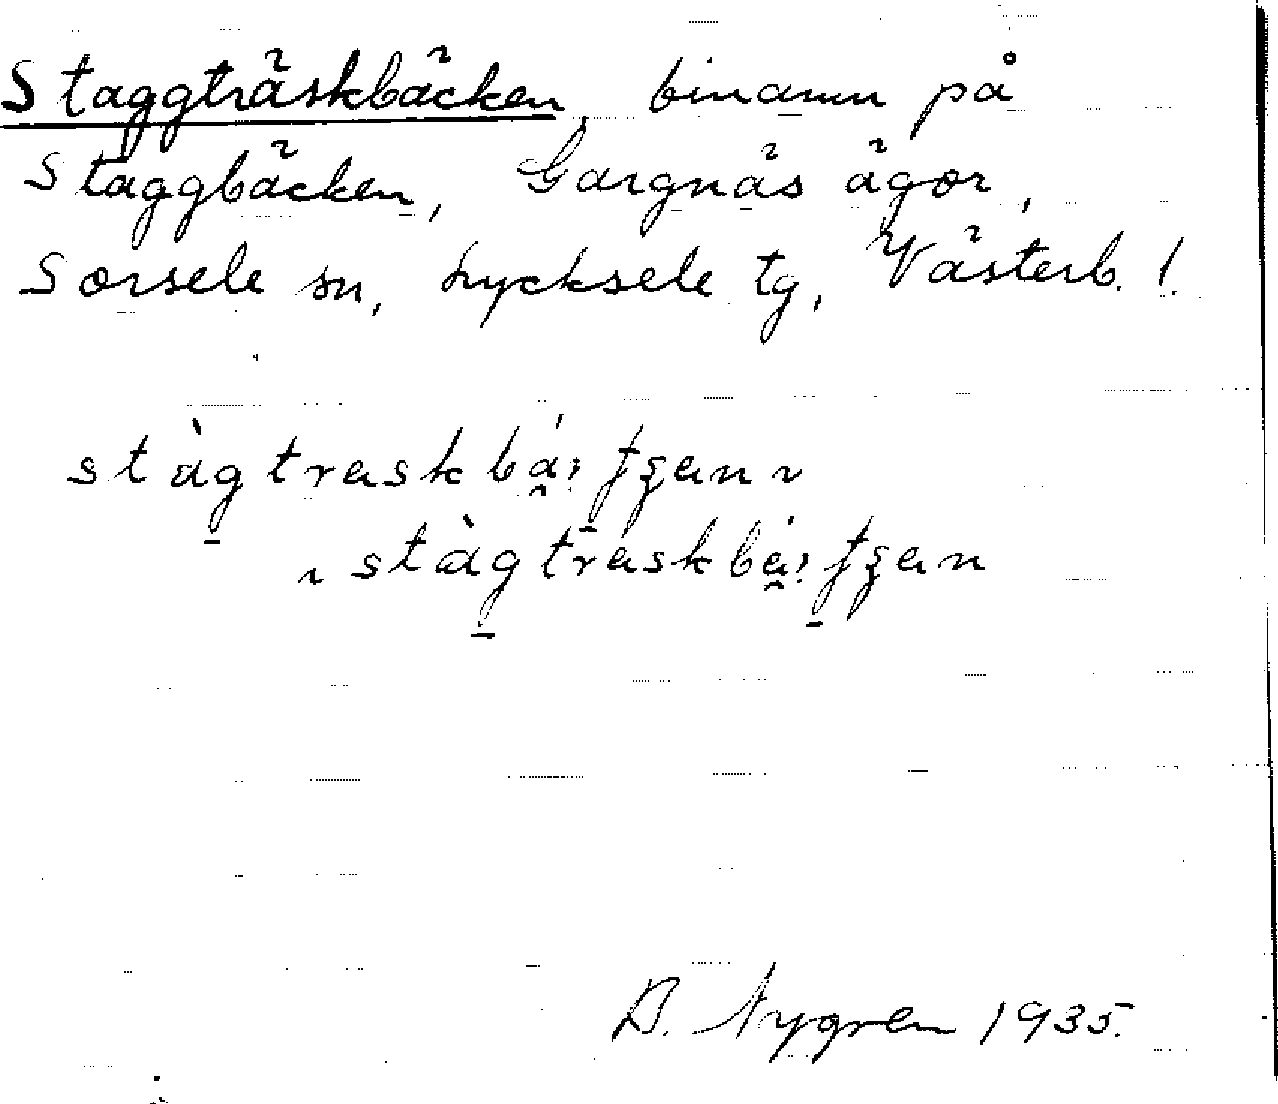 Staggträskbäcken, binamn på
Staggbäcken, Gargnäs ägor,
Sorsele sn, Lycksele tg, Västerb. l.
B. Nygren 1935.